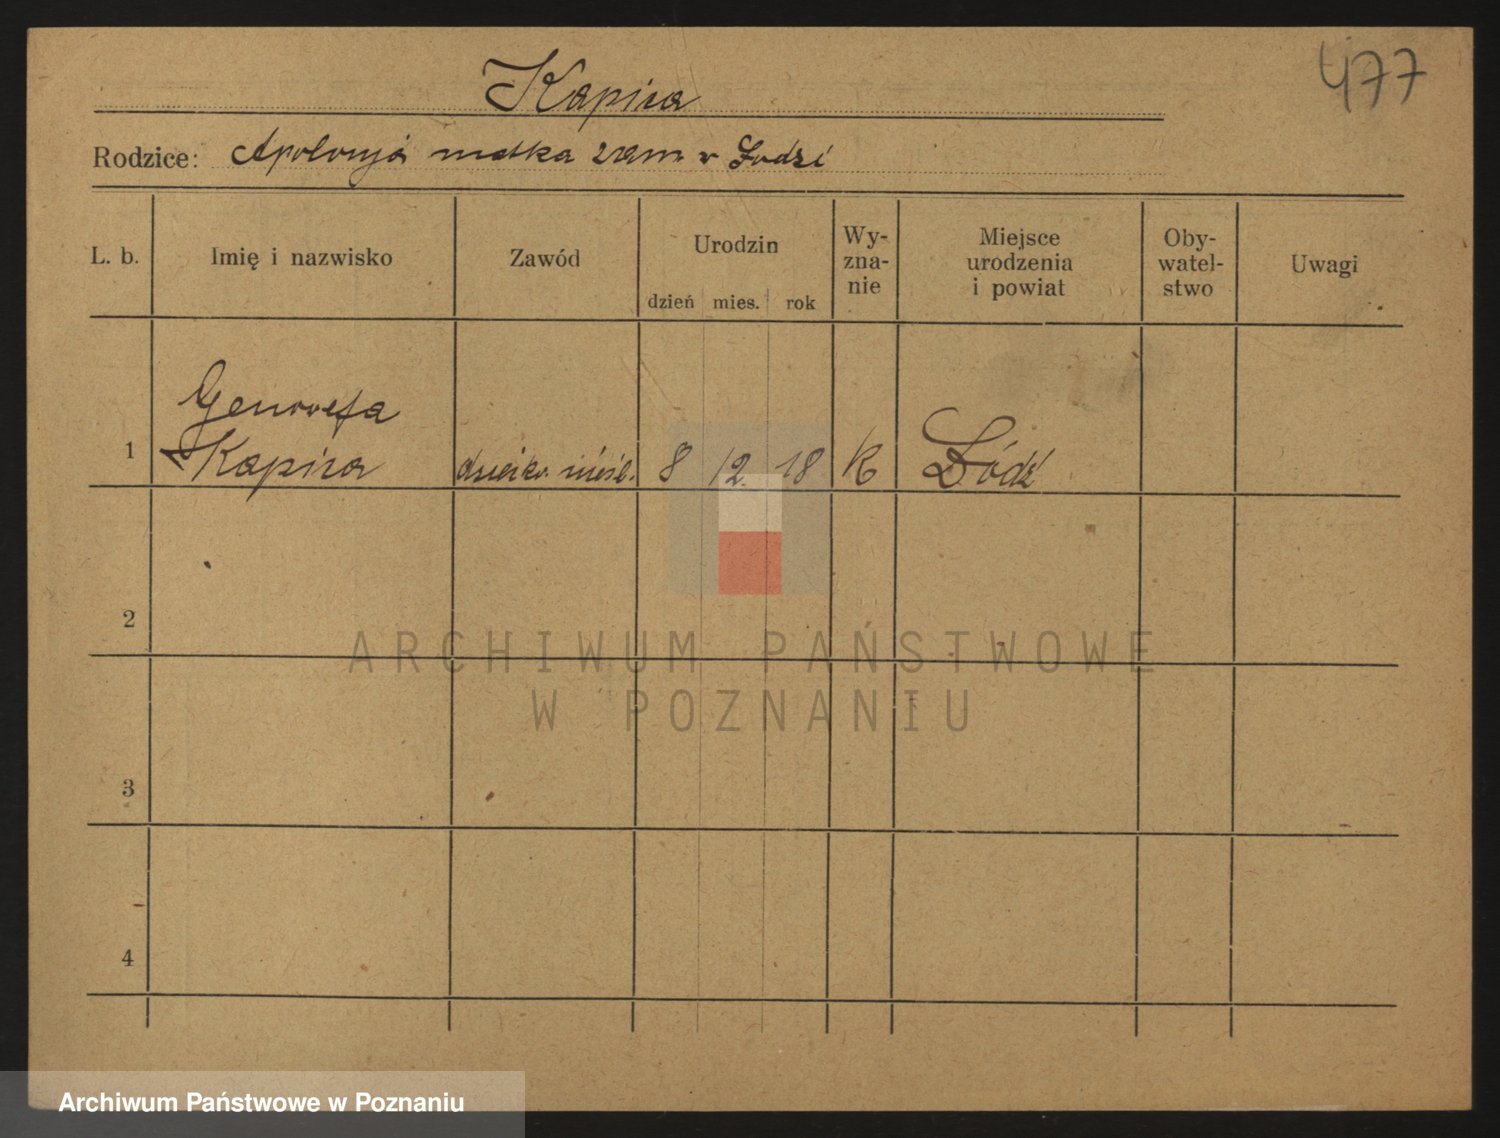 477
Kapica
Rodzice: Apolonja matka zam w Łodzi
L. b. Imię i nazwisko Zawód Urodzin Wy- zna- nie Miejsce urodzenia i powiat Oby- watel- stwo Uwagi
dzień mies. rok
Genowefa
1 Kapica dziecko nieśl. 8 12. 18 K Łódź
2
ARCHIWUM PAŃSTWOWE
W POZNANIU
3
4
Archiwum Państwowe w Poznaniu